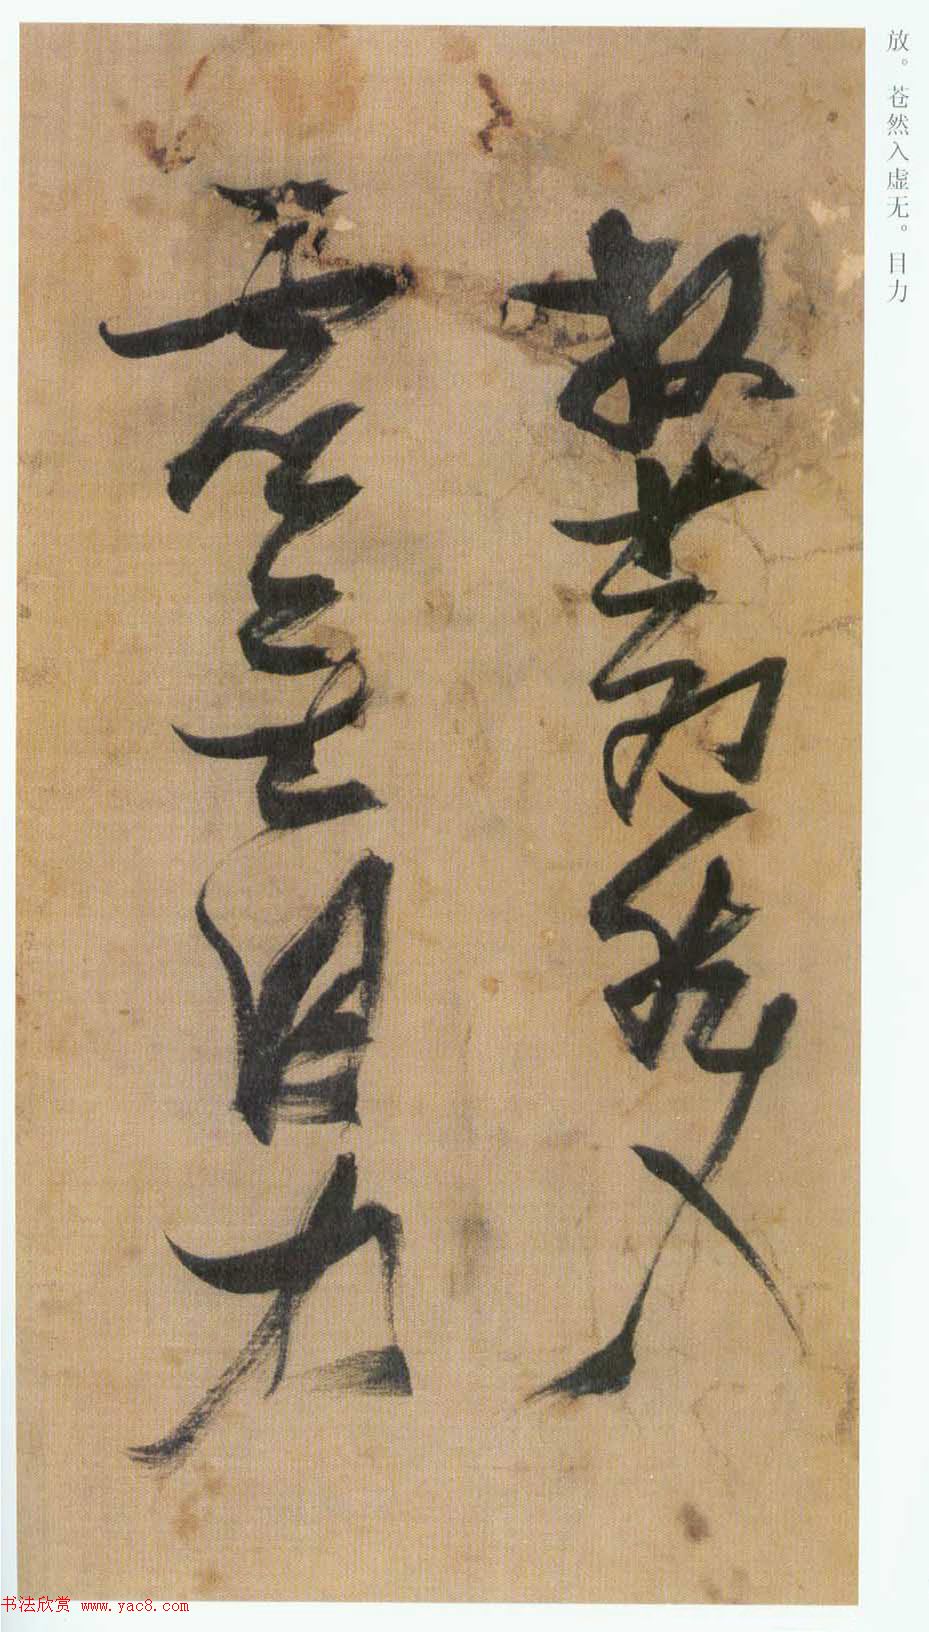 放。苍然入虚无。目力
放苍然入
虚无目力
书法欣赏 www.yac8.com